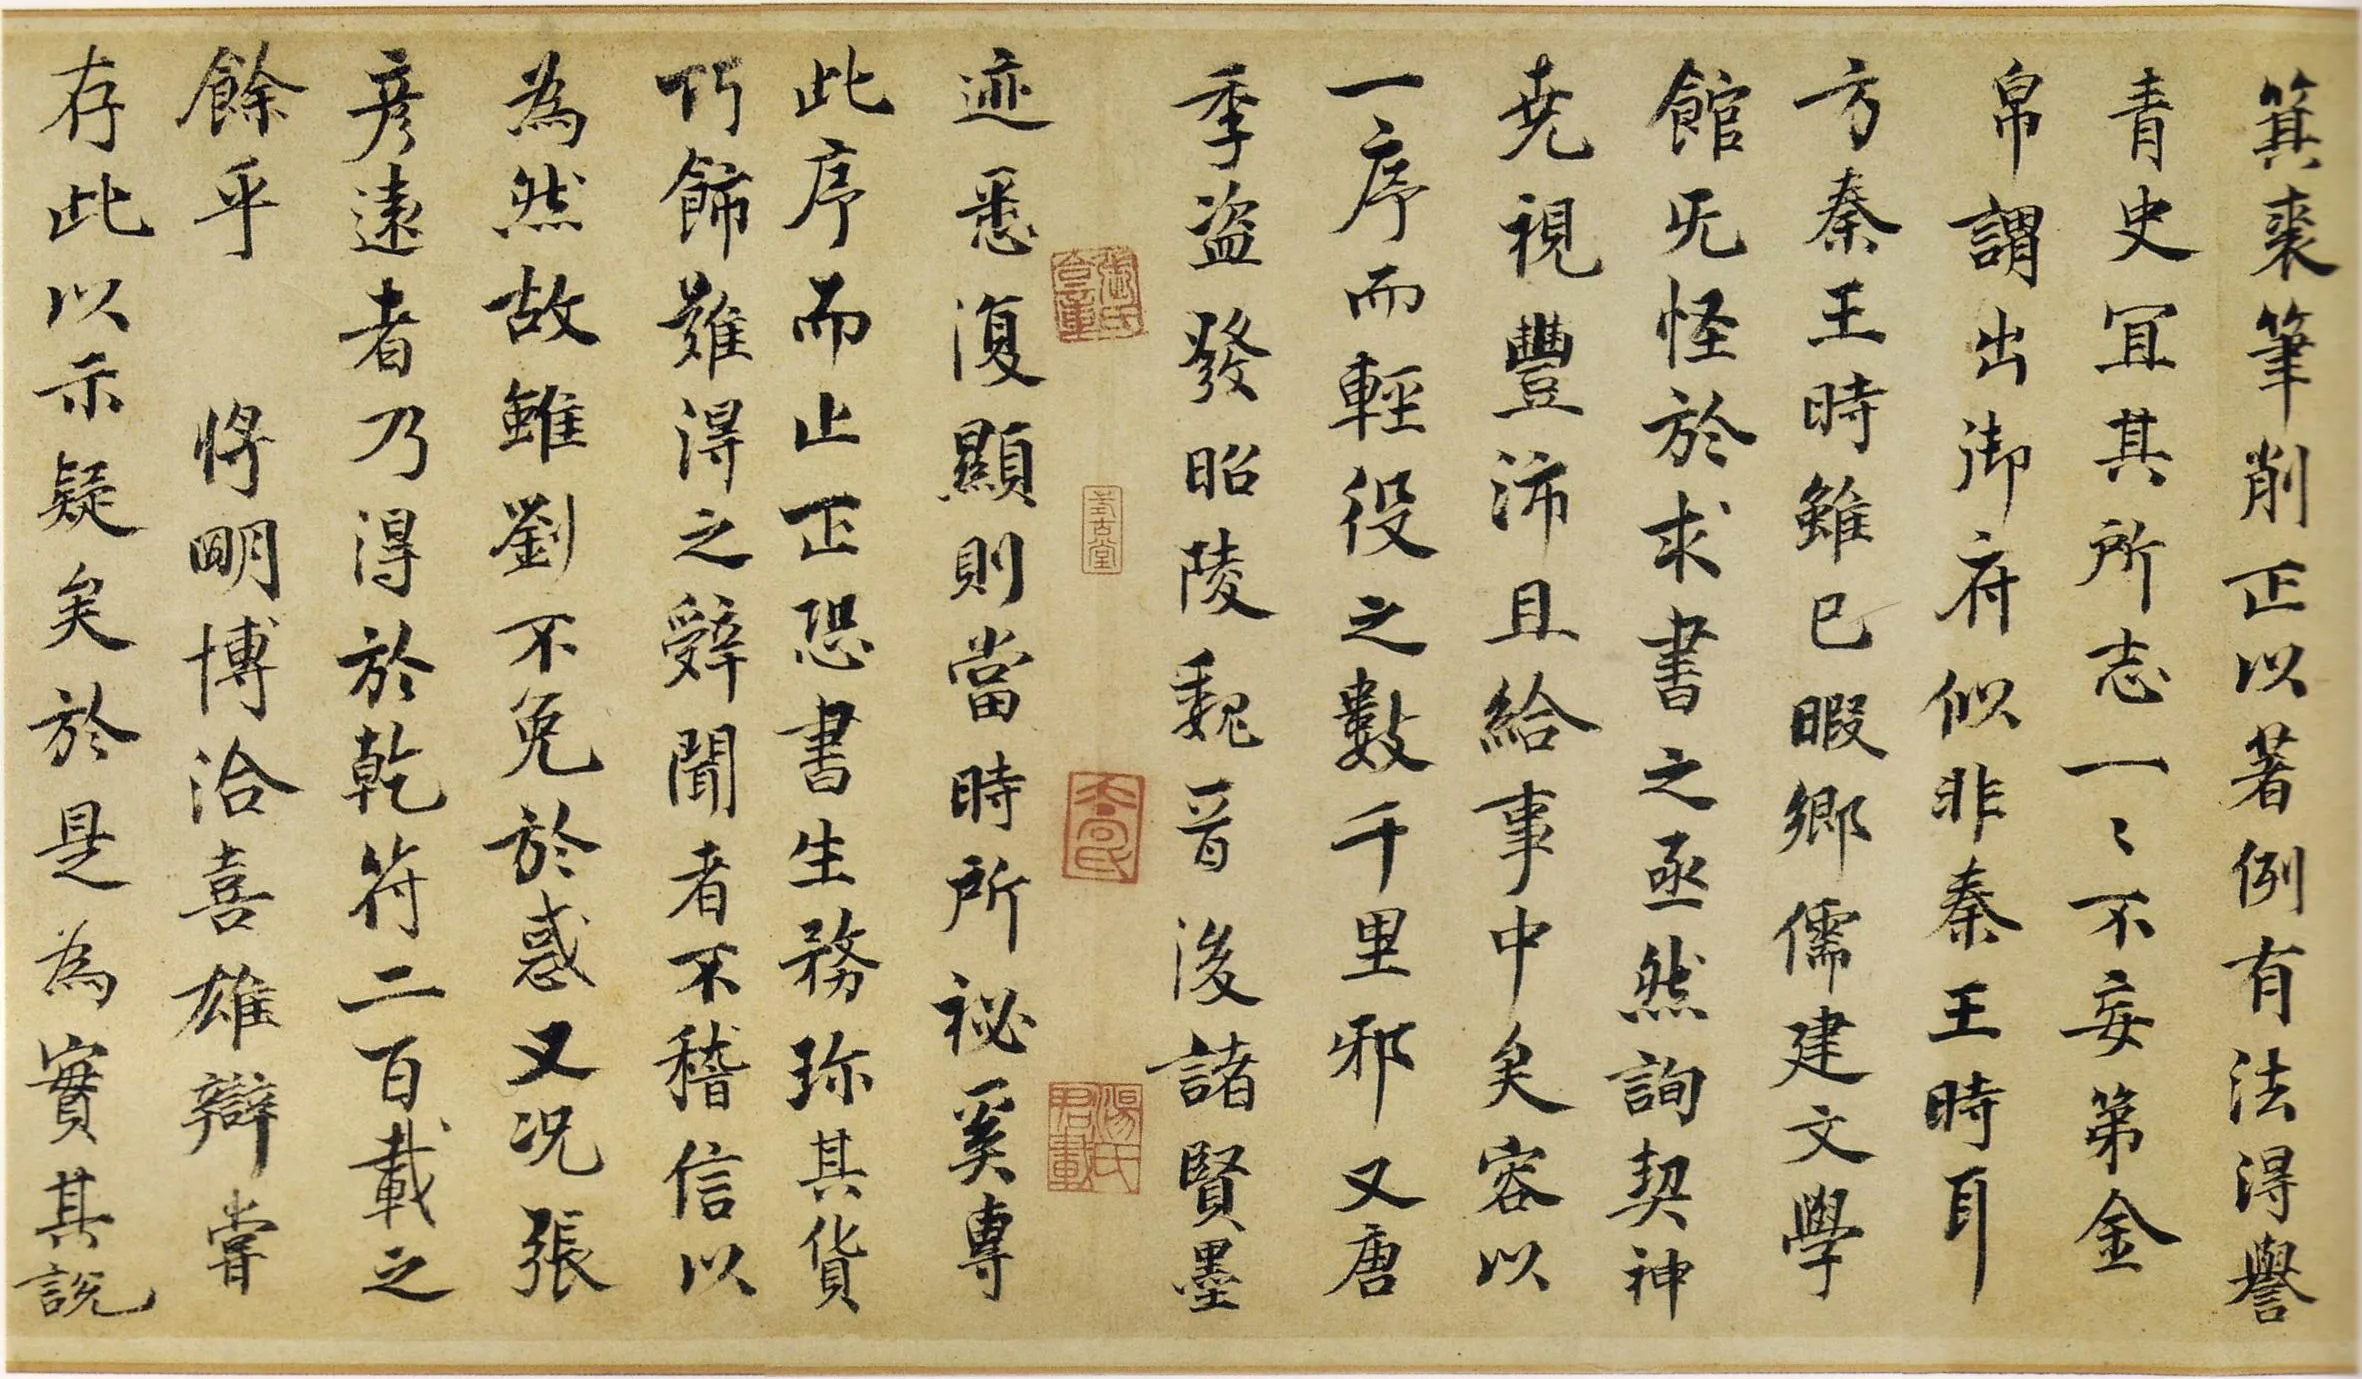 箕裘筆削正以著例有法得譽
青史宜其所志一〻不妄第金
帛謂出御府似非秦王時耳
方秦王時雖已暇鄉儒建文學
館旡怪於求書之亟然詢契神
尭視豐沛且給事中矣容以
一序而輕役之數千里邪又唐
季盗發昭陵魏晉後諸賢墨
迹悉復顯則當時所祕奚專
此序而止正恐書生務珎其貨
巧飾難得之辭聞者不稽信以
為然故雖劉不免於惑又况張
彦遠者乃得於乾符二百載之
餘乎 将明博洽喜雄辯嘗
存此以示疑矣於是為實其說
式古堂